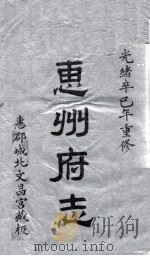 光緒辛巳年重修
惠州府志
惠郡城北文昌宮藏板
mtoou.info